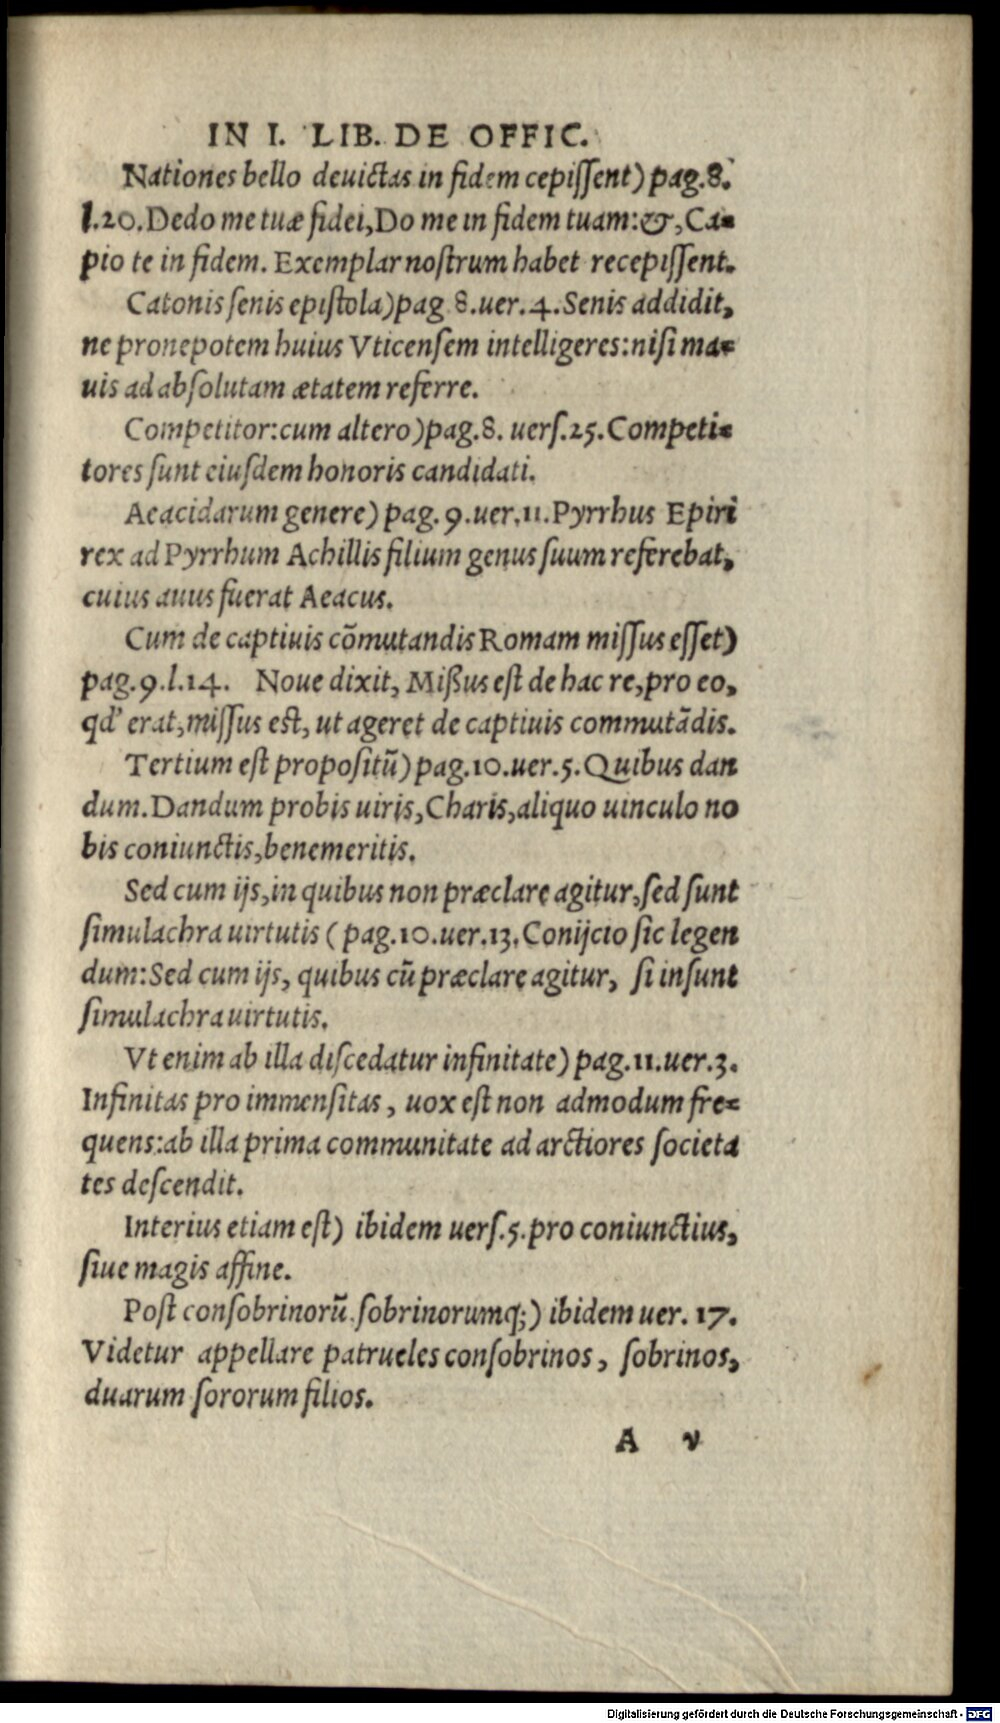 IN I. LIB. DE OFFIC.
Nationes bello deuictas in fidem cepiſſent) pag.8.
l.20. Dedo me tuæ fidei, Do me in fidem tuam: &, Ca-
pio te in fidem. Exemplar noſtrum habet recepiſſent.
Catonis ſenis epiſtola) pag 8.uer.4. Senis addidit,
ne pronepotem huius Vticenſem intelligeres: niſi ma-
uis ad abſolutam ætatem referre.
Competitor: cum altero) pag.8. uerſ.25. Competi-
tores ſunt eiuſdem honoris candidati.
Aeacidarum genere) pag.9.uer.11. Pyrrhus Epiri
rex ad Pyrrhum Achillis filium genus ſuum referebat,
cuius auus fuerat Aeacus.
Cum de captiuis cōmutandis Romam miſſus eſſet)
pag.9.l.14. Noue dixit, Mißus eſt de hac re, pro eo,
qd' erat, miſſus est, ut ageret de captiuis commutādis.
Tertium eſt propoſitū) pag.10.uer.5. Quibus dan
dum. Dandum probis uiris, Charis, aliquo uinculo no
bis coniunctis, benemeritis.
Sed cum ijs, in quibus non præclare agitur, ſed ſunt
ſimulachra uirtutis ( pag.10.uer.13. Conijcio ſic legen
dum: Sed cum ijs, quibus cū præclare agitur, ſi inſunt
ſimulachra uirtutis.
Vt enim ab illa diſcedatur infinitate) pag.11.uer.3.
Infinitas pro immenſitas, uox eſt non admodum fre-
quens: ab illa prima communitate ad arctiores ſocieta
tes deſcendit.
Interius etiam eſt) ibidem uerſ.5. pro coniunctius,
ſiue magis affine.
Poſt conſobrinorū ſobrinorumq;) ibidem uer. 17.
Videtur appellare patrueles conſobrinos, ſobrinos,
duarum ſororum filios.
A v
Digitalisierung gefördert durch die Deutsche Forschungsgemeinschaft - DFG